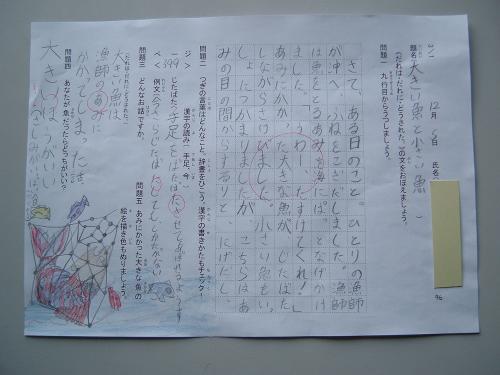 シ/
題名 大きい魚と小さい魚
12月5日 氏名
96
《だれは・だれに・どうされた。》の文をおぼえましょう。
問題一 九行目からうつしましょう。
さて、ある日のこと。ひとりの漁師
が沖へ、ふねをこぎだしました。漁師
は魚をとるあみを海にぱっとなげかけ
ました。「うわー、たすけてくれ!」
あみにかかった大きな魚が、じたばた
しながらさけびました。小さい魚もいっ
しょにつかまりましたが、こちらはあ
みの目の間からするりと、にげだし
問題二 つぎの言葉はどんなこと。辞書をひこう。漢字の書きかたもチェック!
ジ》 漢字の読み 手足、今
一 じたばた
ペ 399
《例文》
問題三 どんなお話ですか。
《だれは・だれに・どうされた。》
大きい魚は、
漁師のあみに
かかってしまった話。
問題四 あなたが魚だったらどっちがいい?
大きい
問題五 あみにかかった大きな魚の
絵を描き色もぬりましょう。